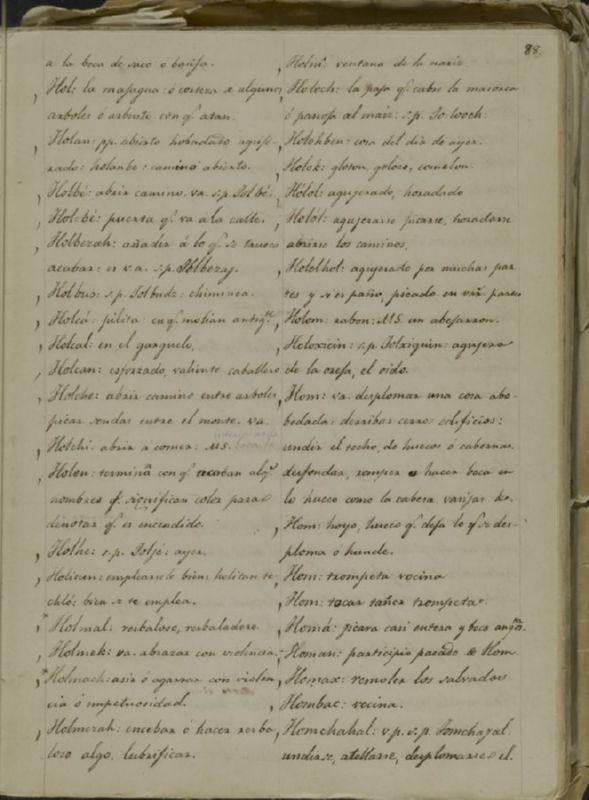 88.
a la boca de saco o bolsa.
, Hol: la majagua: ó corteza de algunos
arboles ó arbusto con q.e atan.
, Holan: pp. abierto horadado aguje-
rado: holanbe: camino abierto.
, Holbé: abrir camino. va. s.p. Jolbé.
, Holbé: puerta q.e va a la calle.
, Holbezah: añadir á lo q.e se trueca
acabar: es v.a. s.p. Jolbezaj.
, Holbus: s.p. Jolbudz: chiminea.
, Holcá: pilita: en q.e molian antig.te
, Holcal: en el garguelo.
, Holcan: esforzado, valiente, caballero
, Holche: abrir camino entre arboles,
picar sendas entre el monte. va.
, Holchi: abrir a comer: MS.
, Holen: termin.n con q.e acaban alg.s
nombres q.e significan color para
dinotar q.e es encendido.
, Holhe: s.p. Joljé: ayer.
, Holicen: emplearsele bien: holitan te-
chló: bien se te emplea.
, Holmal: resbaloso, resbaladero.
, Holmek: va. abrazar con violencia.
, Holmach: asir ó agarrar con violen
cia ó impetuosidad.
, Holmezah: encebar ó hacer resba
loso algo, lubrificar.
, Holni: ventana de la nariz
, Holoch: la paja q.e cubre la masorca
ó panoja al maiz: s.p. Jo.looch.
, Holohben: cosa del dia de ayer.
, Holok: gloton, goloso, comelon.
, Hólol: agujerado, horadado
, Holól: agujerarse picarse, horadarse
abrirse los caminos,
, Hololhol: agujerado por muchas par
tes y si es paño, picado en var.s partes
, Holom: rabon: MS. un abejarron.
, Holoxicin: s.p. Jolxiquin: agujero
de la oreja, el oido.
, Hom: va. desplomar una cosa abo-
bedada: derribar cerros edificios:
undir el techo, de huecos ó cabernas
desfondar, romper o hacer boca en
lo hueco como la cabeza, vasijas &.
, Hom: hoyo, hueco q.e deja lo q.e se des-
ploma o hunde.
, Hom: trompeta vocina
, Hom: tocar tañer trompetas.
, Homá: jicara casi entera y boca ang.ta
, Homan: participio pasado de Hom.
, Homax: remoler los salvados
, Hombac: vocina.
, Homchahal: v.p. s.p. Jomchajal
undirse, atollarse, desplomarse el